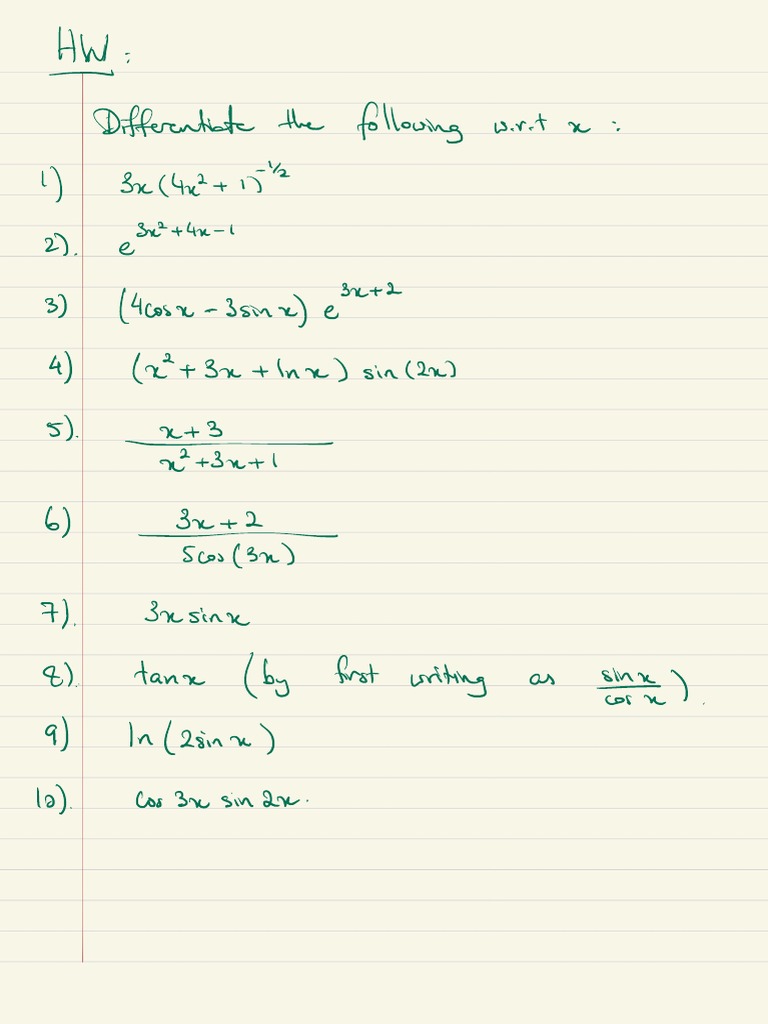 HW:
Differentiate the following w.r.t x :
1) 3x(4x² + 1)^-1/2
2). e^3x²+4x-1
3) (4cosx - 3sinx) e^3x+2
4) (x² + 3x + lnx) sin(2x)
5). x+3
x²+3x+1
6) 3x+2
5cos(3x)
7). 3x sinx
8). tanx (by first writing as sinx/cosx).
9) ln(2sinx)
10). cos 3x sin 2x.